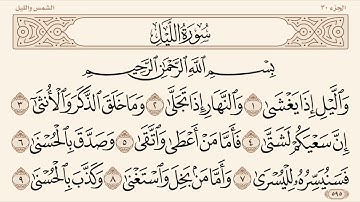 الجزء ٣٠
الشمس والليل
سُورَةُ اللَّيْلِ
بِسْمِ اللَّهِ الرَّحْمَٰنِ الرَّحِيمِ
وَٱلَّيْلِ إِذَا يَغْشَىٰ ١ وَٱلنَّهَارِ إِذَا تَجَلَّىٰ ٢ وَمَا خَلَقَ ٱلذَّكَرَ وَٱلْأُنثَىٰٓ ٣
إِنَّ سَعْيَكُمْ لَشَتَّىٰ ٤ فَأَمَّا مَنْ أَعْطَىٰ وَٱتَّقَىٰ ٥ وَصَدَّقَ بِٱلْحُسْنَىٰ ٦
فَسَنُيَسِّرُهُۥ لِلْيُسْرَىٰ ٧ وَأَمَّا مَنۢ بَخِلَ وَٱسْتَغْنَىٰ ٨ وَكَذَّبَ بِٱلْحُسْنَىٰ ٩
٥٩٥